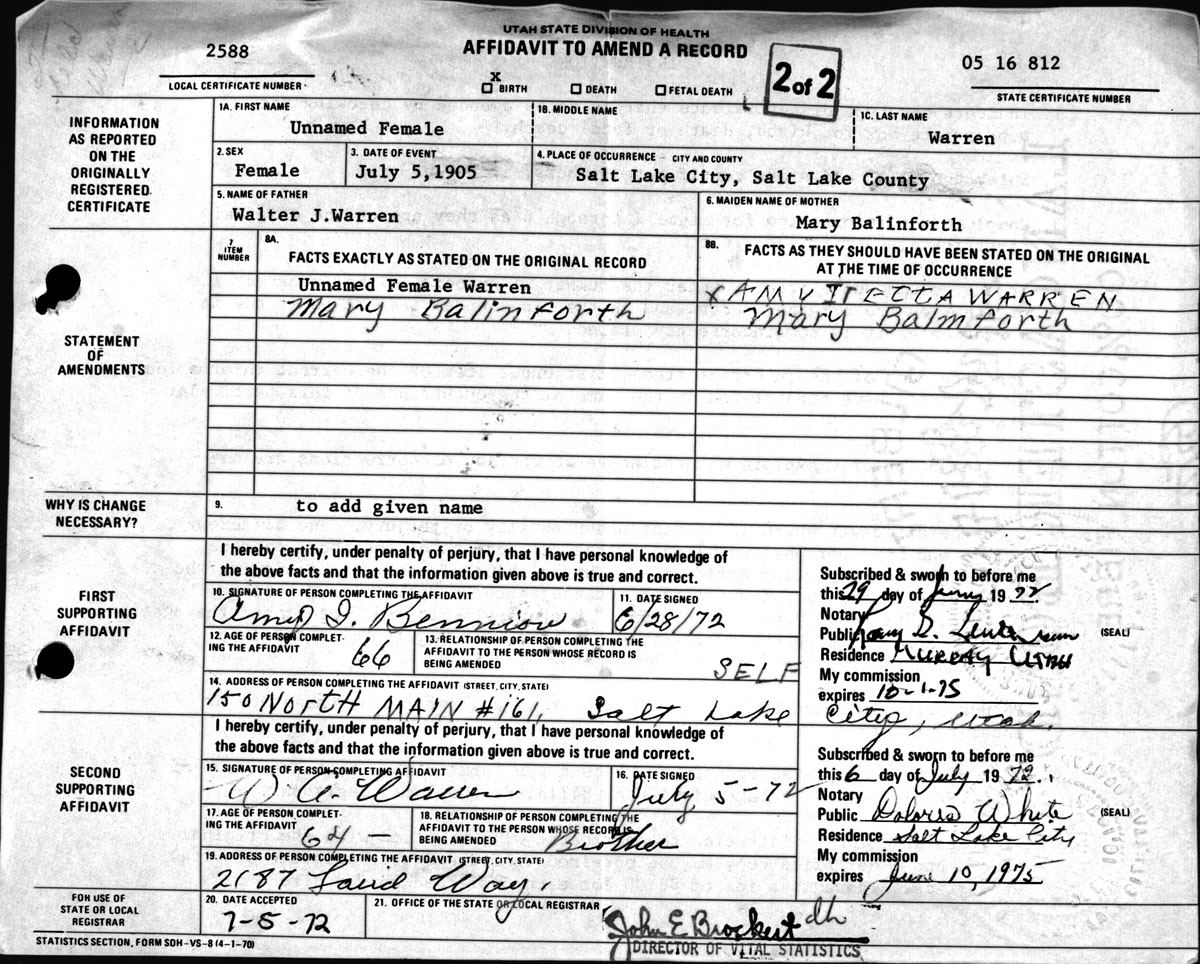 UTAH STATE DIVISION OF HEALTH
AFFIDAVIT TO AMEND A RECORD
2588
LOCAL CERTIFICATE NUMBER
X
BIRTH DEATH FETAL DEATH
2 of 2
05 16 812
STATE CERTIFICATE NUMBER
INFORMATION AS REPORTED ON THE ORIGINALLY REGISTERED CERTIFICATE
1A. FIRST NAME 1B. MIDDLE NAME 1C. LAST NAME
Unnamed Female Warren
2. SEX 3. DATE OF EVENT 4. PLACE OF OCCURRENCE - CITY AND COUNTY
Female July 5,1905 Salt Lake City, Salt Lake County
5. NAME OF FATHER 6. MAIDEN NAME OF MOTHER
Walter J.Warren Mary Balinforth
STATEMENT OF AMENDMENTS
7 ITEM NUMBER
8A. FACTS EXACTLY AS STATED ON THE ORIGINAL RECORD
8B. FACTS AS THEY SHOULD HAVE BEEN STATED ON THE ORIGINAL
AT THE TIME OF OCCURRENCE
Unnamed Female Warren X AMY IRETTA WARREN
Mary Balinforth Mary Balmforth
WHY IS CHANGE NECESSARY?
9. to add given name
FIRST SUPPORTING AFFIDAVIT
I hereby certify, under penalty of perjury, that I have personal knowledge of
the above facts and that the information given above is true and correct.
10. SIGNATURE OF PERSON COMPLETING THE AFFIDAVIT 11. DATE SIGNED
Amy I. Bennion 6/28/72
12. AGE OF PERSON COMPLETING THE AFFIDAVIT 66
13. RELATIONSHIP OF PERSON COMPLETING THE AFFIDAVIT TO THE PERSON WHOSE RECORD IS BEING AMENDED SELF
14. ADDRESS OF PERSON COMPLETING THE AFFIDAVIT (STREET, CITY, STATE)
150 NORTH MAIN #161, Salt Lake City, Utah.
Subscribed & sworn to before me
this 29 day of 19 72
Notary
Public
(SEAL)
Residence MURRAY UTAH
My commission
expires 10-1-75
SECOND SUPPORTING AFFIDAVIT
I hereby certify, under penalty of perjury, that I have personal knowledge of
the above facts and that the information given above is true and correct.
15. SIGNATURE OF PERSON COMPLETING AFFIDAVIT 16. DATE SIGNED
W A. Warren July 5-72
17. AGE OF PERSON COMPLETING THE AFFIDAVIT 64 -
18. RELATIONSHIP OF PERSON COMPLETING THE AFFIDAVIT TO THE PERSON WHOSE RECORD IS BEING AMENDED Brother
19. ADDRESS OF PERSON COMPLETING THE AFFIDAVIT (STREET, CITY, STATE)
2187 Laird Way.
Subscribed & sworn to before me
this 6 day of July 19 72.
Notary
Public Dolores White (SEAL)
Residence Salt Lake City
My commission
expires June 10, 1975
FOR USE OF STATE OR LOCAL REGISTRAR
20. DATE ACCEPTED 21. OFFICE OF THE STATE OR LOCAL REGISTRAR
7-5-72 John E Brockert dh
DIRECTOR OF VITAL STATISTICS
STATISTICS SECTION, FORM SDH-VS-8 (4-1-70)